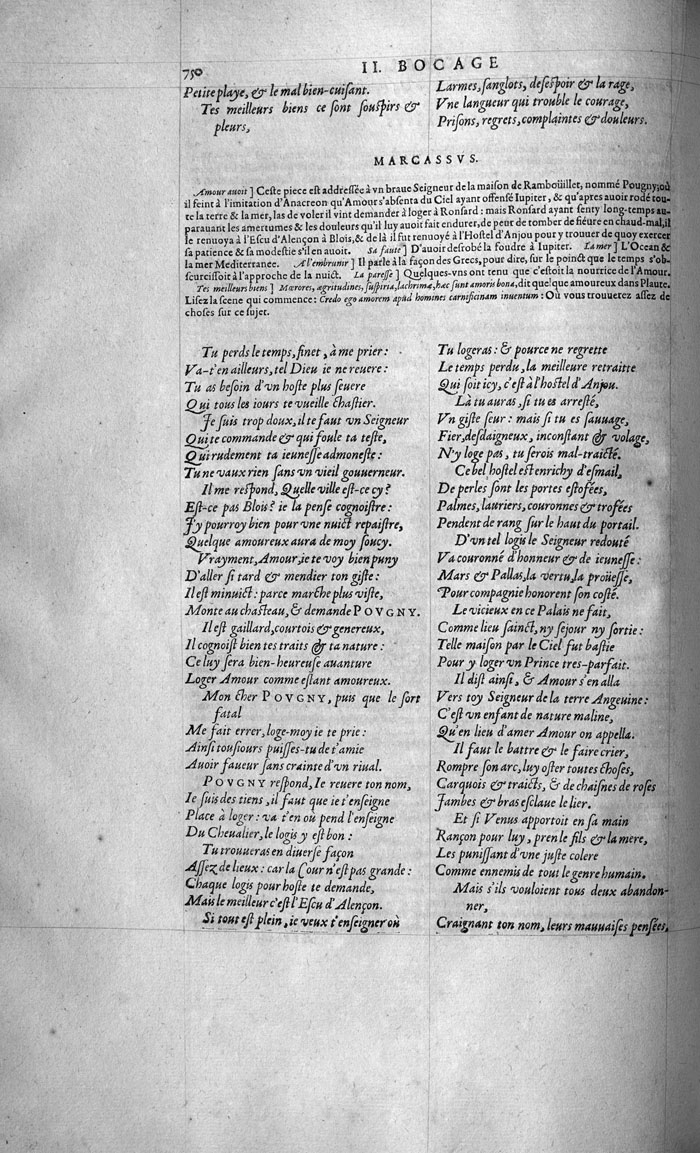 750
II. BOCAGE
Petite playe, & le mal bien-cuisant.
Tes meilleurs biens ce sont souspirs &
pleurs,
Larmes, sanglots, desespoir & la rage,
Vne langueur qui trouble le courage,
Prisons, regrets, complaintes & douleurs.
MARCASSVS.
Amour auoit ] Ceste piece est addressée à vn braue Seigneur de la maison de Ramboüillet, nommé Pougny; où
il feint à l'imitation d'Anacreon qu'Amour s'absenta du Ciel ayant offensé Iupiter, & qu'apres auoir rodé tou-
te la terre & la mer, las de voler il vint demander à loger à Ronsard : mais Ronsard ayant senty long-temps au-
parauant les amertumes & les douleurs qu'il luy auoit fait endurer, de peur de tomber de fiéure en chaud-mal, il
le renuoya à l'Escu d'Alençon à Blois, & de là il fut renuoyé à l'Hostel d'Anjou pour y trouuer de quoy exercer
sa patience & sa modestie s'il en auoit. Sa faute ] D'auoir desrobé la foudre à Iupiter. La mer ] L'Ocean &
la mer Mediterranée. A l'embrunir ] Il parle à la façon des Grecs, pour dire, sur le poinct que le temps s'ob-
scurcissoit à l'approche de la nuict. La paresse ] Quelques-vns ont tenu que c'estoit la nourrice de l'Amour.
Tes meilleurs biens ] Mœrores, ægritudines, suspiria, lachrimæ, hæc sunt amoris bona, dit quelque amoureux dans Plaute.
Lisez la scene qui commence : Credo ego amorem apud homines carnificinam inuentum : Où vous trouuerez assez de
choses sur ce sujet.
Tu perds le temps, finet, à me prier :
Va-t'en ailleurs, tel Dieu ie ne reuere :
Tu as besoin d'vn hoste plus seuere
Qui tous les iours te vueille chastier.
Je suis trop doux, il te faut vn Seigneur
Qui te commande & qui foule ta teste,
Qui rudement ta ieunesse admoneste :
Tu ne vaux rien sans vn vieil gouuerneur.
Il me respond, Quelle ville est-ce cy ?
Est-ce pas Blois ? ie la pense cognoistre :
J'y pourroy bien pour vne nuict repaistre,
Quelque amoureux aura de moy soucy.
Vrayment, Amour, ie te voy bien puny
D'aller si tard & mendier ton giste :
Il est minuict : parce marche plus viste,
Monte au chasteau, & demande POVGNY.
Il est gaillard, courtois & genereux,
Il cognoist bien tes traits & ta nature :
Ce luy sera bien-heureuse auanture
Loger Amour comme estant amoureux.
Mon cher POVGNY, puis que le sort
fatal
Me fait errer, loge-moy ie te prie :
Ainsi tousiours puisses-tu de t'amie
Auoir faueur sans crainte d'vn riual.
POVGNY respond, Ie reuere ton nom,
Ie suis des tiens, il faut que ie t'enseigne
Place à loger : va t'en où pend l'enseigne
Du Cheualier, le logis y est bon :
Tu trouueras en diuerse façon
Assez de lieux : car la Cour n'est pas grande :
Chaque logis pour hoste te demande,
Mais le meilleur c'est l'Escu d'Alençon.
Si tout est plein, ie veux t'enseigner où
Tu logeras : & pource ne regrette
Le temps perdu, la meilleure retraitte
Qui soit icy, c'est à l'hostel d'Anjou.
Là tu auras, si tu es arresté,
Vn giste seur : mais si tu es sauuage,
Fier, desdaigneux, inconstant & volage,
N'y loge pas, tu serois mal-traicté.
Ce bel hostel est enrichy d'esmail,
De perles sont les portes estofées,
Palmes, lauriers, couronnes & trofées
Pendent de rang sur le haut du portail.
D'vn tel logis le Seigneur redouté
Va couronné d'honneur & de ieunesse :
Mars & Pallas, la vertu, la proüesse,
Pour compagnie honorent son costé.
Le vicieux en ce Palais ne fait,
Comme lieu sainct, ny sejour ny sortie :
Telle maison par le Ciel fut bastie
Pour y loger vn Prince tres-parfait.
Il dist ainsi, & Amour s'en alla
Vers toy Seigneur de la terre Angeuine :
C'est vn enfant de nature maline,
Qu'en lieu d'amer Amour on appella.
Il faut le battre & le faire crier,
Rompre son arc, luy oster toutes choses,
Carquois & traicts, & de chaisnes de roses
Jambes & bras esclaue le lier.
Et si Venus apportoit en sa main
Rançon pour luy, pren le fils & la mere,
Les punissant d'vne juste colere
Comme ennemis de tout le genre humain.
Mais s'ils vouloient tous deux abandon-
ner,
Craignant ton nom, leurs mauuaises pensées,